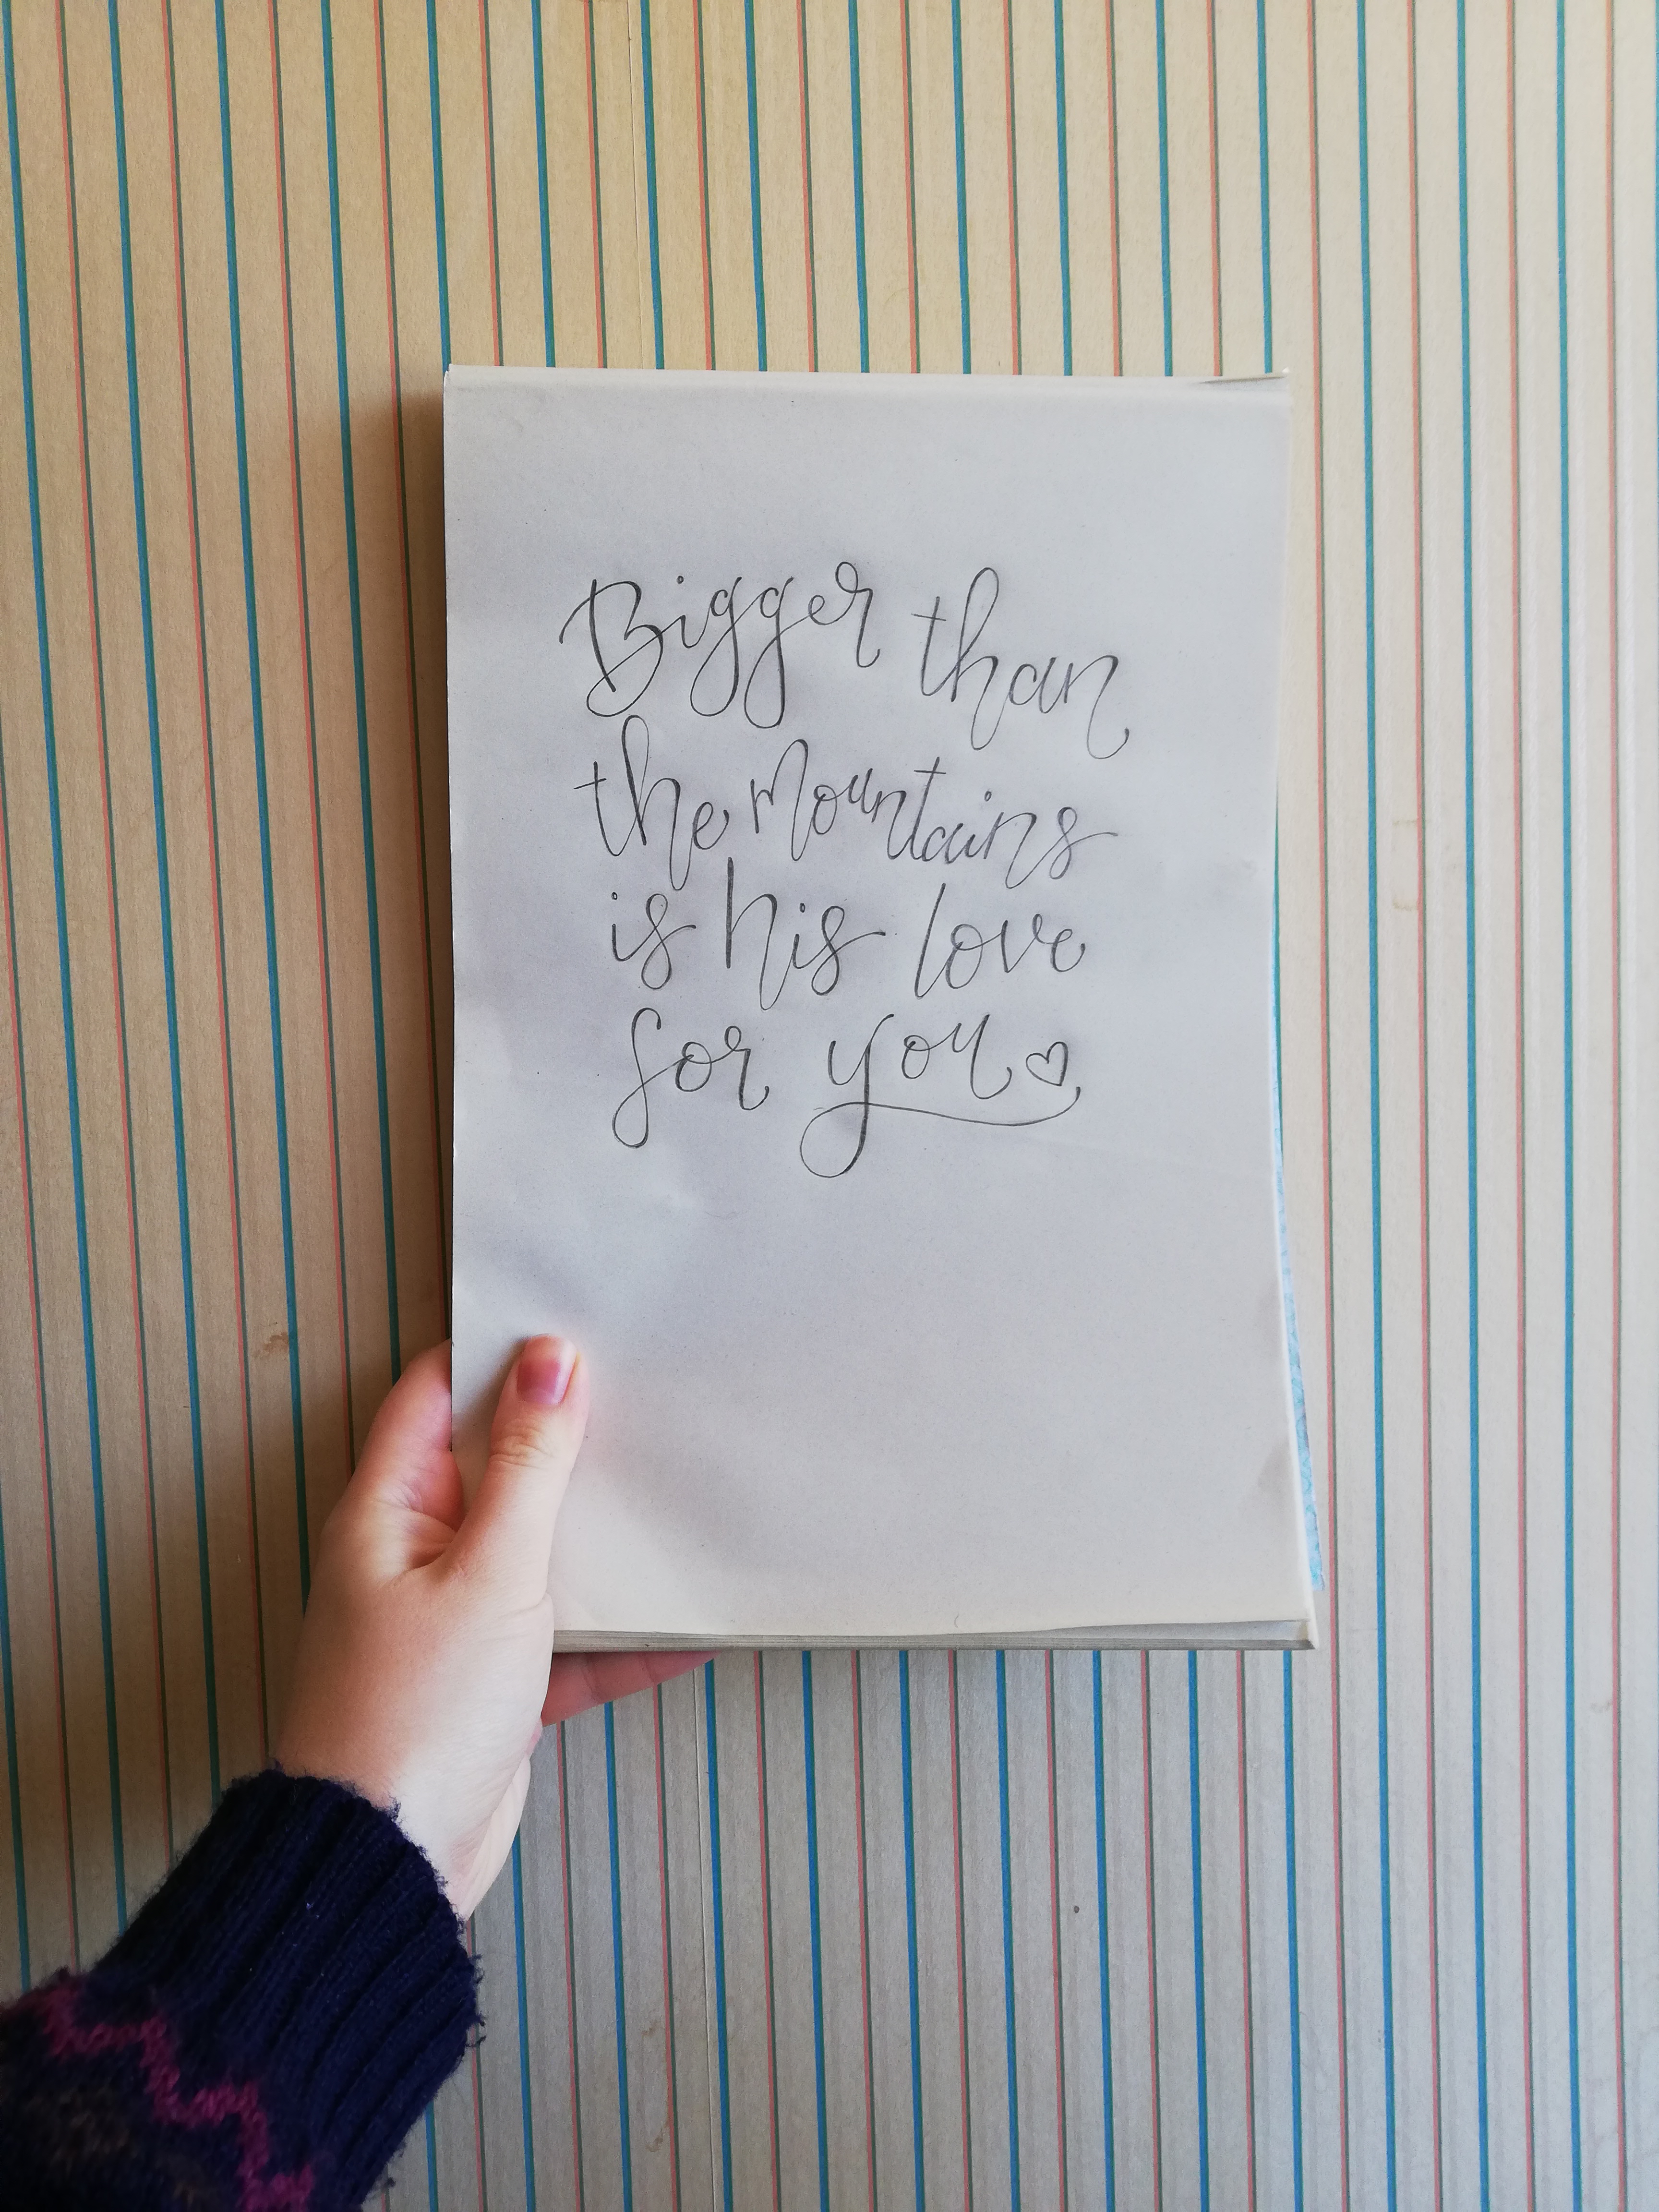 Bigger than
the mountains
is his love
for you♡